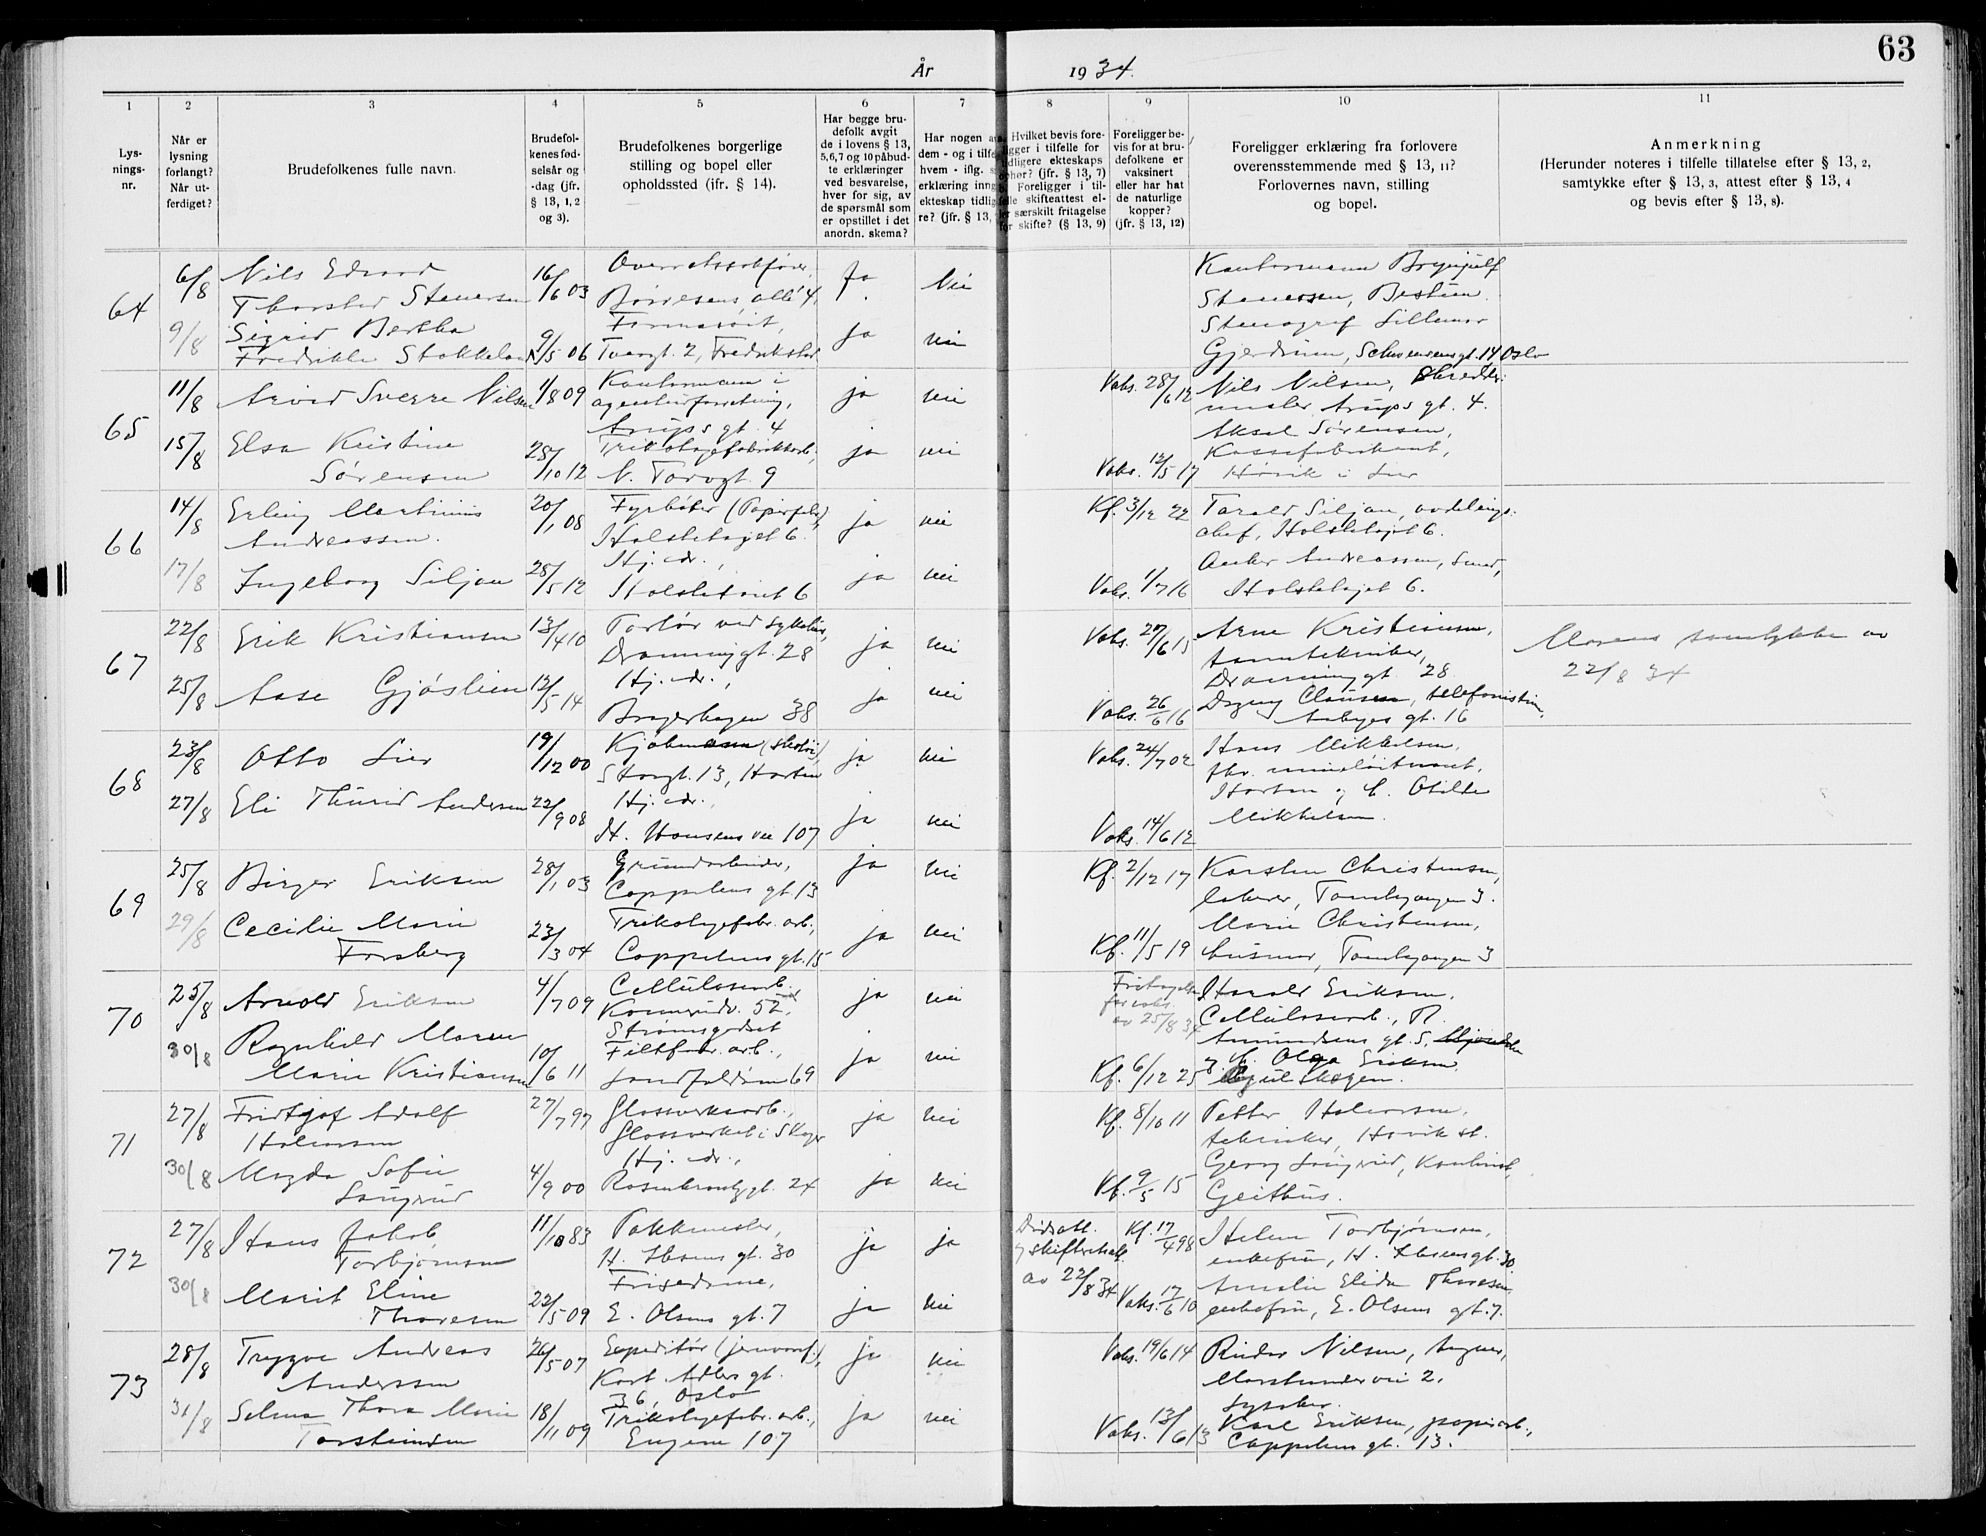 63
År 1934.
1 2 3 4 5 6 7 8 9 10 11
Lys-
nings-
nr.
Når er
lysning
forlangt?
Når ut-
ferdiget?
Brudefolkenes fulle navn.
Brudefol-
kenes fød-
selsår og
-dag (jfr.
§ 13, 1, 2
og 3).
Brudefolkenes borgerlige
stilling og bopel eller
opholdssted (jfr. § 14).
Har begge bru-
defolk avgit
de i lovens § 13,
5,6,7 og 10 påbud-
te erklæringer
ved besvarelse,
hver for sig, av
de spørsmål som
er opstillet i det
anordn. skema?
Har nogen av
dem - og i tilfelle
hvem - iflg.
erklæring inng
ekteskap tidlige
re? (jfr. § 13,
Hvilket bevis fore-
ligger i tilfelle for
tidligere ekteskaps
ophør? (jfr. § 13, 7)
Foreligger i til-
felle skifteattest el-
ler særskilt fritagelse
for skifte? (§ 13, 9)
Foreligger be-
vis for at bru-
defolkene er
vaksinert
eller har hat
de naturlige
kopper?
(jfr. § 13, 12)
Foreligger erklæring fra forlovere
overensstemmende med § 13, 11?
Forlovernes navn, stilling
og bopel.
Anmerkning
(Herunder noteres i tilfelle tillatelse efter § 13, 2,
samtykke efter § 13, 3, attest efter § 13, 4
og bevis efter § 13, 8).
64
6/8 Nils Edvard
Thorstad Stenersen
16/6 03
Børresens allé 4,
Ja Nei
Kontormann Brynjulf
Stenersen, Bestum.
9/8 Sigrid Bertha
Fredrikke Stokkeland
9/5 06
Tverrgt. 2, Fredrikstad
ja nei
Stenograf Lillemor
Gjerdrum, Schwensensgt. 14 Oslo
65
11/8 Arvid Sverre Nilsen
1/8 09
Kontormann i
agenturforretning,
Arups gt. 4
ja nei
Vaks. 28/6 12
Nils Nilsen, Skredder-
mester Arups gt. 4.
15/8 Elsa Kristine
Sørensen
28/10 12
Trikotagefabrikkarb.,
N. Torvgt. 9
ja nei
Vaks. 12/5 17
Aksel Sørensen,
Kassefabrikant,
Høvik i Lier
66
14/8 Erling Martinius
Andreassen.
20/1 08
Fyrbøter (Papirfabr.)
Holstehaget 6.
ja nei
Kf. 3/12 22
Torald Siljan, avdelings-
chef, Holstehaget 6.
17/8 Ingeborg Siljan
28/5 12
Hj. dr.,
Holstehaget 6
ja nei
Vaks. 1/7 16
Anker Andreassen, Smed,
Holstehaget 6.
67
22/8 Erik Kristiansen
13/4 10
Portør ved sykehus,
Drammengt. 28
ja nei
Vaks. 27/6 15
Arne Kristiansen,
tanntekniker,
Drammengt. 28
Morens samtykke av
22/8 34
25/8 Aase Gjøslien
12/5 14
Hj. dr.,
Bragerhagen 38
ja nei
Vaks. 26/6 16
Dagny Clausen, telefonistinne,
Aabyes gt. 16
68
23/8 Otto Lier
19/12 00
Kjøbmann (skotøi),
Storgt. 13, Horten
ja nei
Vaks. 24/7 02
Hans Mikkelsen,
fhv. mineløitnant,
Horten og
27/8 Eli Thurid Andersen
22/9 08
Hj. dr.,
H. Hansens vei 107
ja nei
Vaks. 14/6 12
Otilde
Mikkelsen.
69
25/8 Birger Eriksen
28/1 03
Grundarbeider,
Cappelens gt. 13
ja nei
Kf. 2/12 17
Karsten Christensen,
laborer, Tomtegangen 3.
29/8 Cecilie Marie
Forsberg
23/3 04
Trikotagefabr. arb.,
Cappelens gt. 15
ja nei
Kf. 11/5 19
Marie Christensen,
husmor, Tomtegangen 3
70
25/8 Arnold Eriksen
4/7 09
Cellulosearb.
Konnerudv. 52,
Strømsgodset
ja nei
Fritagelse
for vaks.
av 25/8 34
Harald Eriksen,
Cellulosearb., R.
Amundsens gt. 5,
30/8 Ragnhild Maren
Marie Kristiansen
10/6 11
Filtfabr. arb.,
Landfalløen 69
ja nei
Kf. 6/12 25
Olga Eriksen
71
27/8 Fridtjof Adolf
Halvorsen
27/7 97
Glassverksarb.,
Glassverket i Skoger
ja nei
Kf. 8/10 11
Petter Halvorsen,
tekniker, Høvik st.
30/8 Magda Sofie
Laugerud
4/9 00
Hj. dr.,
Rosenkrantzgt. 24
ja nei
Kf. 9/5 15
Georg Laugerud, Kontorist,
Geithus.
72
27/8 Hans Jakob
Torbjørnsen
11/10 83
Pakkmester,
H. Ibsens gt. 30
ja ja
Dødsatt.
og skifteattest
av 22/8 34
Kf. 17/4 98
Helene Torbjørnsen,
enkefru, H. Ibsensgt. 30
30/8 Marit Eline
Thoresen
22/5 09
Frisedame,
E. Olsens gt. 7
ja nei
Vaks. 17/6 10
Amalie Elida Thoresen,
enkefru, E. Olsens gt. 7.
73
28/8 Trygve Andreas
Anderssen
26/5 07
Expeditør (jernvaref.),
Kort Adlers gt.
36, Oslo
ja nei
Vaks. 19/6 14
Reidar Nilsen, Agnes,
Marstrandervei 2,
Lysaker.
31/8 Selma Thora Marie
Torstensen
18/11 09
Trikotagefabr. arb.,
Engene 107
ja nei
Vaks. 13/6 13
Karl Eriksen, papirarb.,
Cappelens gt. 13.